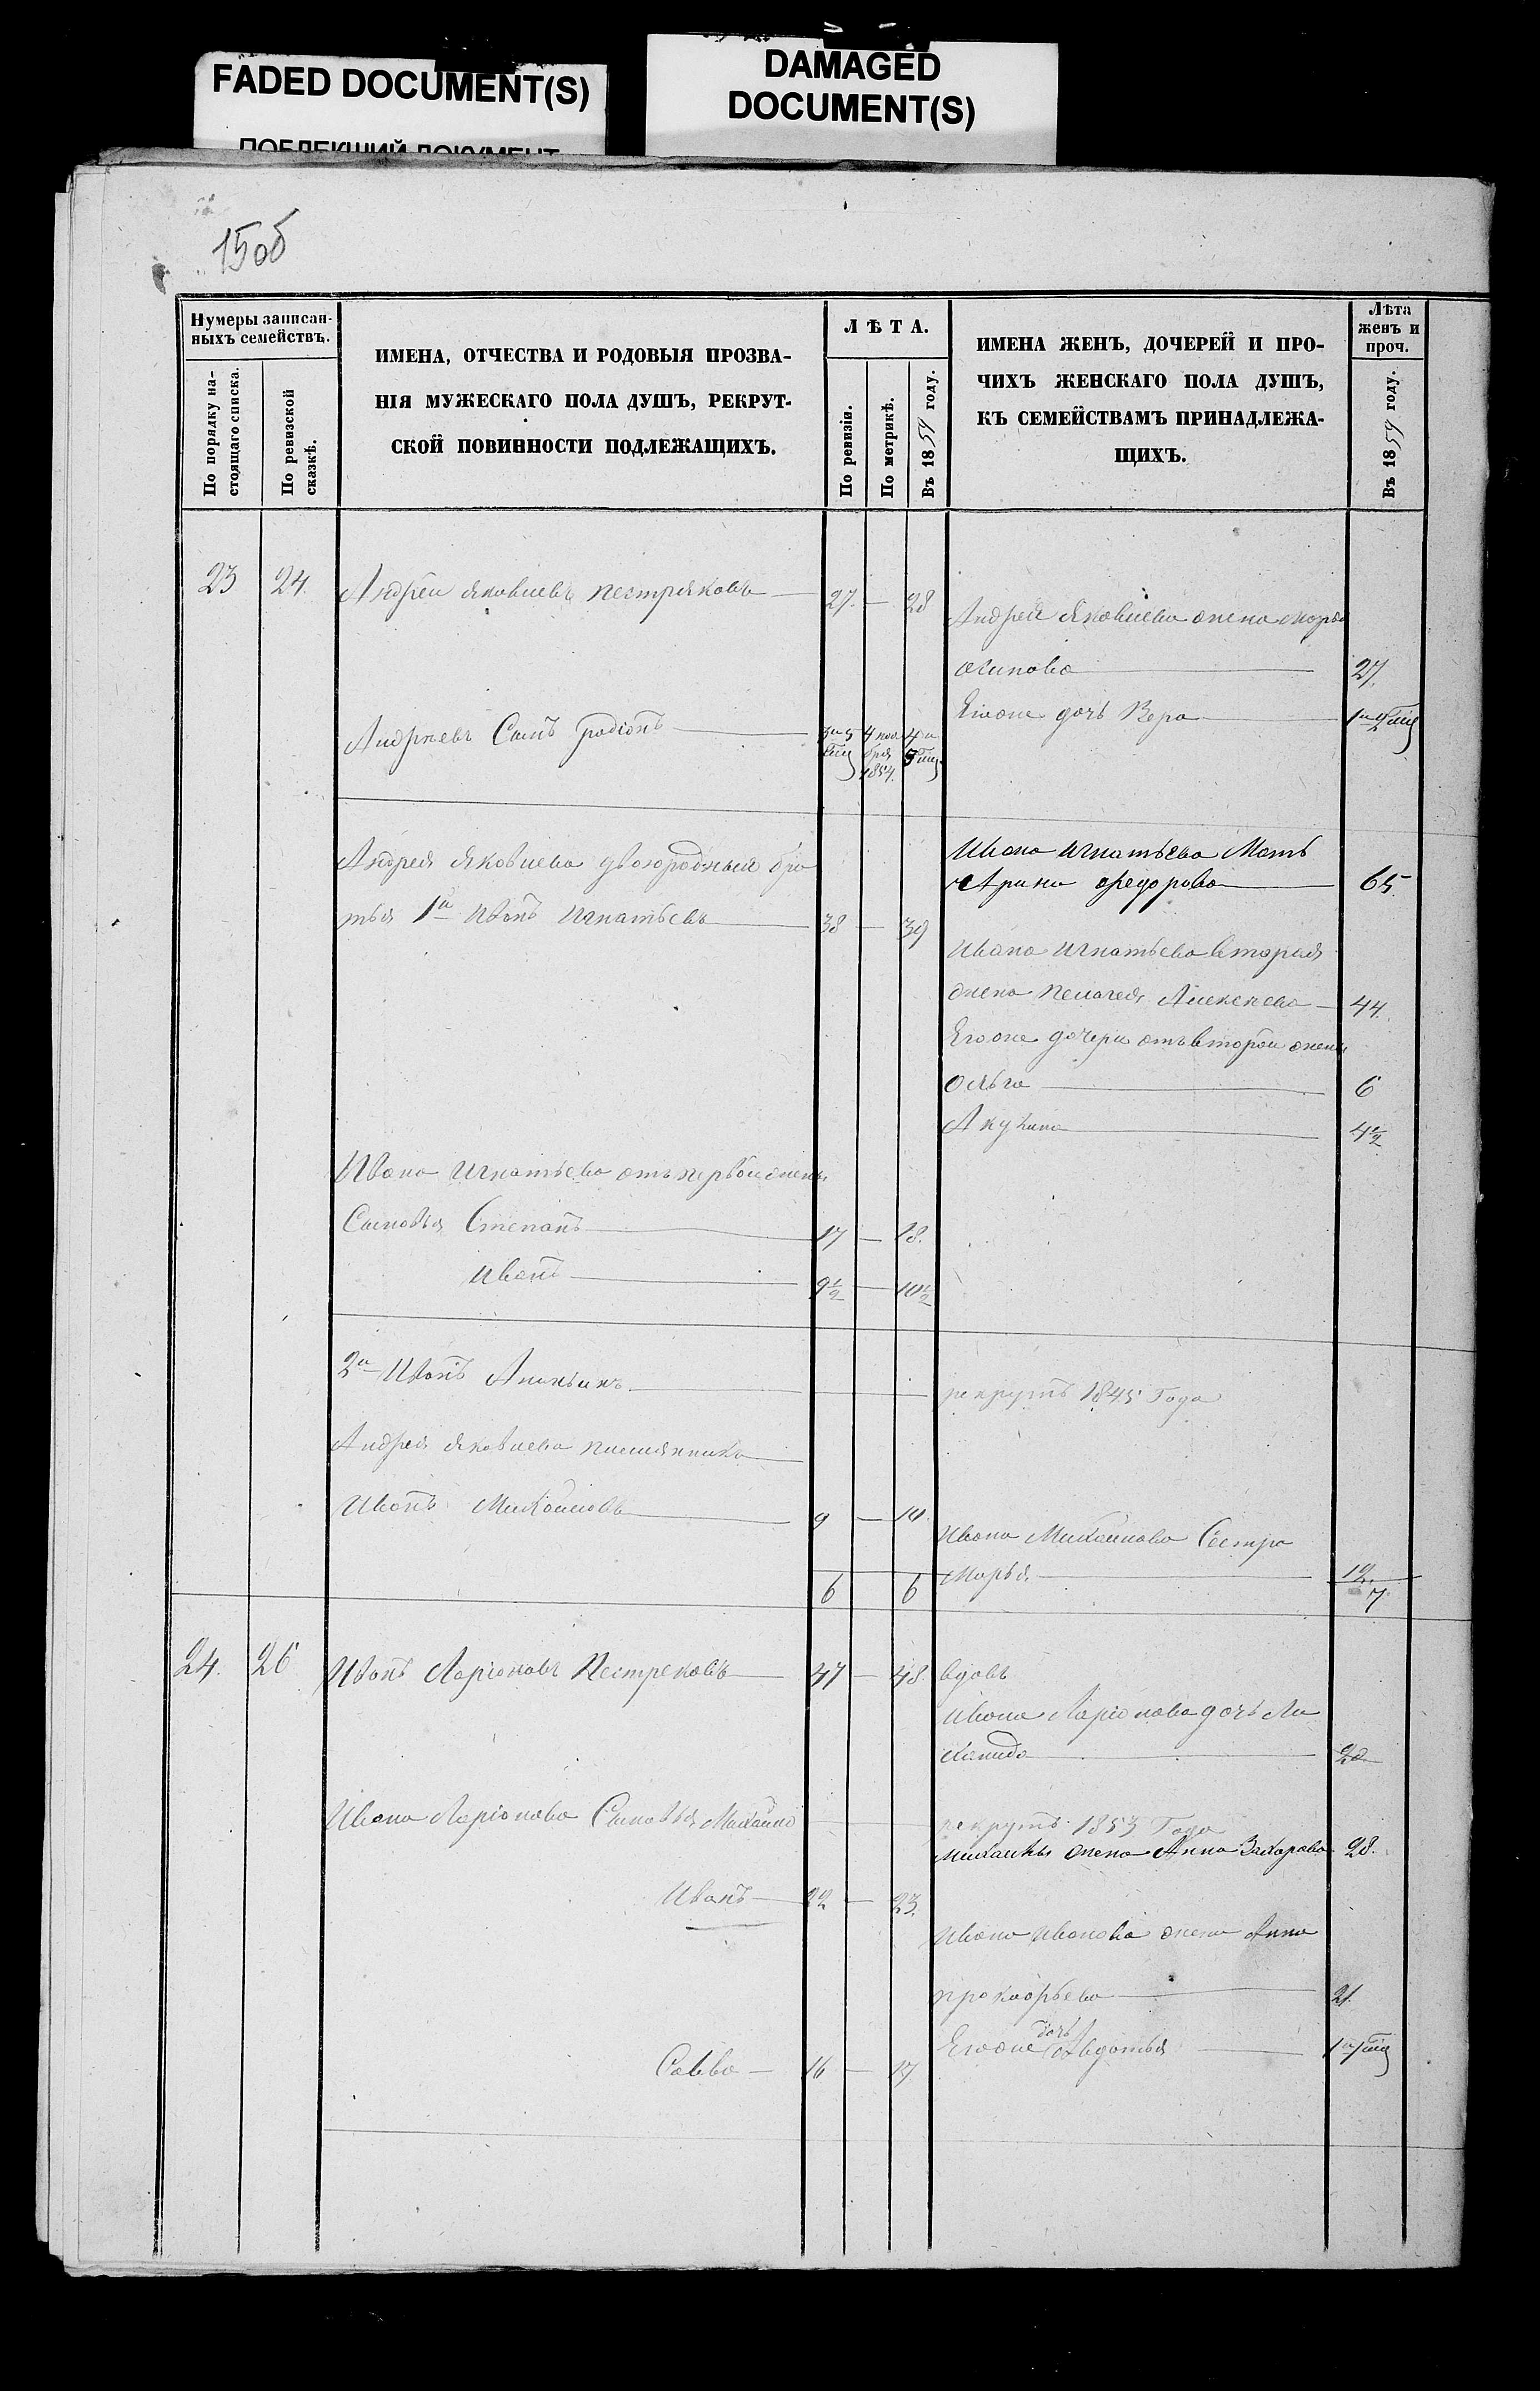 FADED DOCUMENT(S)
ПОБЛЕКШИЙ ДОКУМЕНТ
DAMAGED
DOCUMENT(S)
15об
Нумеры записан-
ныхъ семействъ.
По порядку на-
стоящаго списка.
По ревизской
сказкѣ.
ИМЕНА, ОТЧЕСТВА И РОДОВЫЯ ПРОЗВА-
НІЯ МУЖЕСКАГО ПОЛА ДУШЪ, РЕКРУТ-
СКОЙ ПОВИННОСТИ ПОДЛЕЖАЩИХЪ.
ЛѢТА.
По ревизіи.
По метрикѣ.
Въ 1854 году.
ИМЕНА ЖЕНЪ, ДОЧЕРЕЙ И ПРО-
ЧИХЪ ЖЕНСКАГО ПОЛА ДУШЪ,
КЪ СЕМЕЙСТВАМЪ ПРИНАДЛЕЖА-
ЩИХЪ.
Лѣта
женъ и
проч.
Въ 1854 году.
23 24. Андрей Яковлевъ Пестряковъ 27. — 28
Андрея Яковлева жена Марья
Осипова 27.
Егоже дочь Вера
Андреевъ Сынъ Родіонъ
Андрея Яковлева двоюродныи бра
тья 1й Иванъ Игнатьевъ 38 — 39
Ивана Игнатьева Мать
Арина Федорова 65.
Ивана Игнатьева вторая
жена Пелагея Алексеева 44.
Егоже дочери отъ второй жены
Ольга 6
Акулина 4½
Ивана Игнатьева отъ первой жены
Сыновья Степанъ 17 — 18.
Иванъ 9½ — 10½
2й Иванъ Ананьинъ
рекрутъ 1845 Года
Андрея Яковлева племянникъ
Иванъ Михайловъ 9 — 10.
Ивана Михайлова Сестра
Марья 12.
6 6 7
24. 26 Иванъ Ларіоновъ Пестрековъ 47 — 48. вдовъ
Ивана Ларіонова дочь Ли
канида 20
Ивана Ларіонова Сыновья Михайло
рекрутъ 1853 Года
Михайлы жена Анна Захарова 28.
Иванъ 22 — 23.
Ивана Иванова жена Анна
Прокофьева 21.
Егоже дочь Авдотья
Савва — 16 — 17